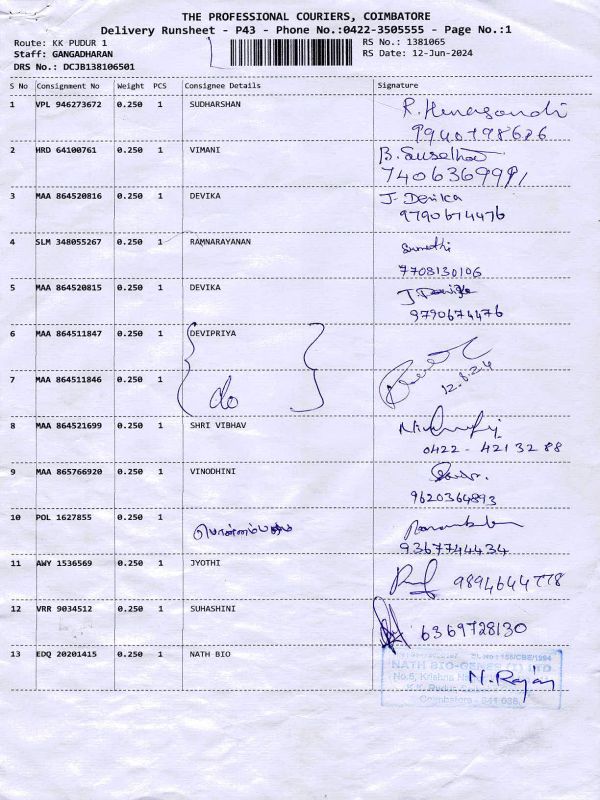 THE PROFESSIONAL COURIERS, COIMBATORE
Delivery Runsheet - P43 - Phone No.:0422-3505555 - Page No.:1
Route: KK PUDUR 1 RS No.: 1381065
Staff: GANGADHARAN RS Date: 12-Jun-2024
DRS No.: DCJB138106501
S No Consignment No Weight PCS Consignee Details Signature
1 VPL 946273672 0.250 1 SUDHARSHAN
9940798686
2 HRD 64100761 0.250 1 VIMANI B.
7406369991
3 MAA 864520816 0.250 1 DEVIKA J. Devika
9790674476
4 SLM 348055267 0.250 1 RAMNARAYANAN Sumathi
7708130106
5 MAA 864520815 0.250 1 DEVIKA J. Devika
9790674476
6 MAA 864511847 0.250 1 DEVIPRIYA
7 MAA 864511846 0.250 1 do 12.6.24
8 MAA 864521699 0.250 1 SHRI VIBHAV
0422 - 4213288
9 MAA 865766920 0.250 1 VINODHINI
9620364893
10 POL 1627855 0.250 1
9367744434
11 AWY 1536569 0.250 1 JYOTHI 9894644778
12 VRR 9034512 0.250 1 SUHASHINI 6369728130
13 EDQ 20201415 0.250 1 NATH BIO
NATH BIO-GENES (I) LTD
No.6, Krishna
K.K. Pudur,
Coimbatore - 641 038.
N. Rajan